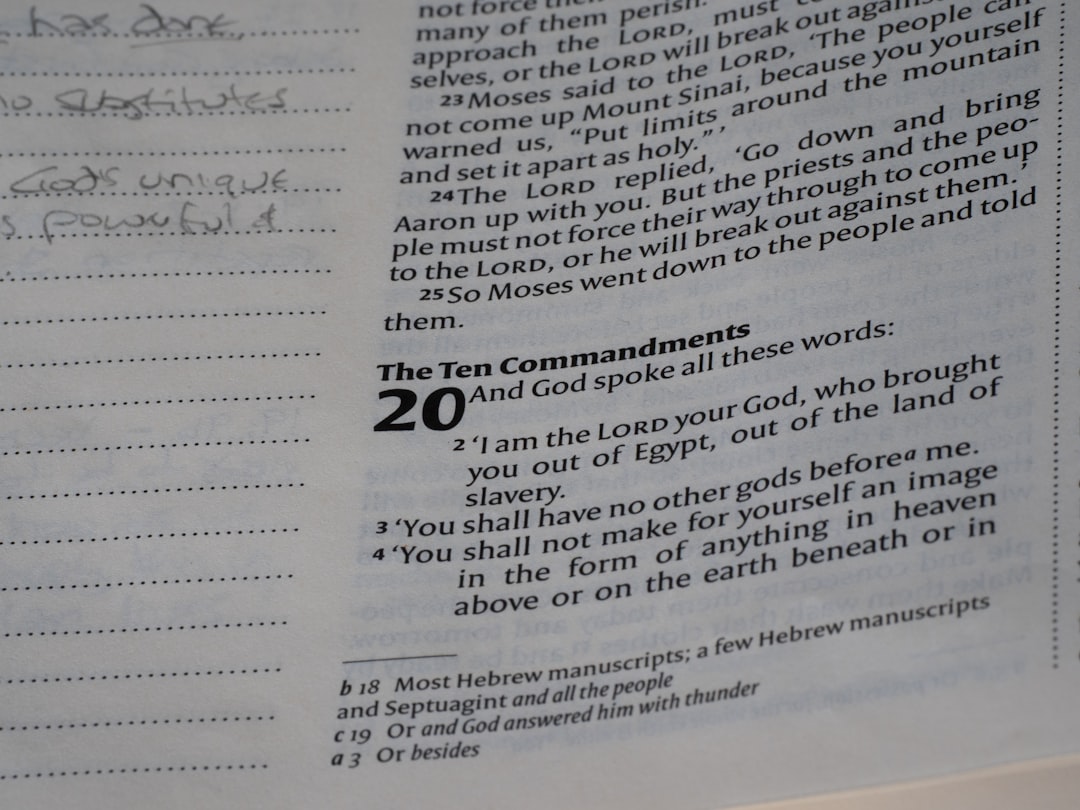 has done,
no substitutes
God's unique
powerful &
not force
many of them perish.
approach the LORD, must
selves, or the LORD will break out against
23 Moses said to the LORD, 'The people can
not come up Mount Sinai, because you yourself
warned us, "Put limits around the mountain
and set it apart as holy."'
24 The LORD replied, 'Go down and bring
Aaron up with you. But the priests and the peo-
ple must not force their way through to come up
to the LORD, or he will break out against them.'
25 So Moses went down to the people and told
them.
The Ten Commandments
20 And God spoke all these words:
2 'I am the LORD your God, who brought
you out of Egypt, out of the land of
slavery.
3 'You shall have no other gods before a me.
4 'You shall not make for yourself an image
in the form of anything in heaven
above or on the earth beneath or in
b 18 Most Hebrew manuscripts; a few Hebrew manuscripts
and Septuagint and all the people
c 19 Or and God answered him with thunder
a 3 Or besides